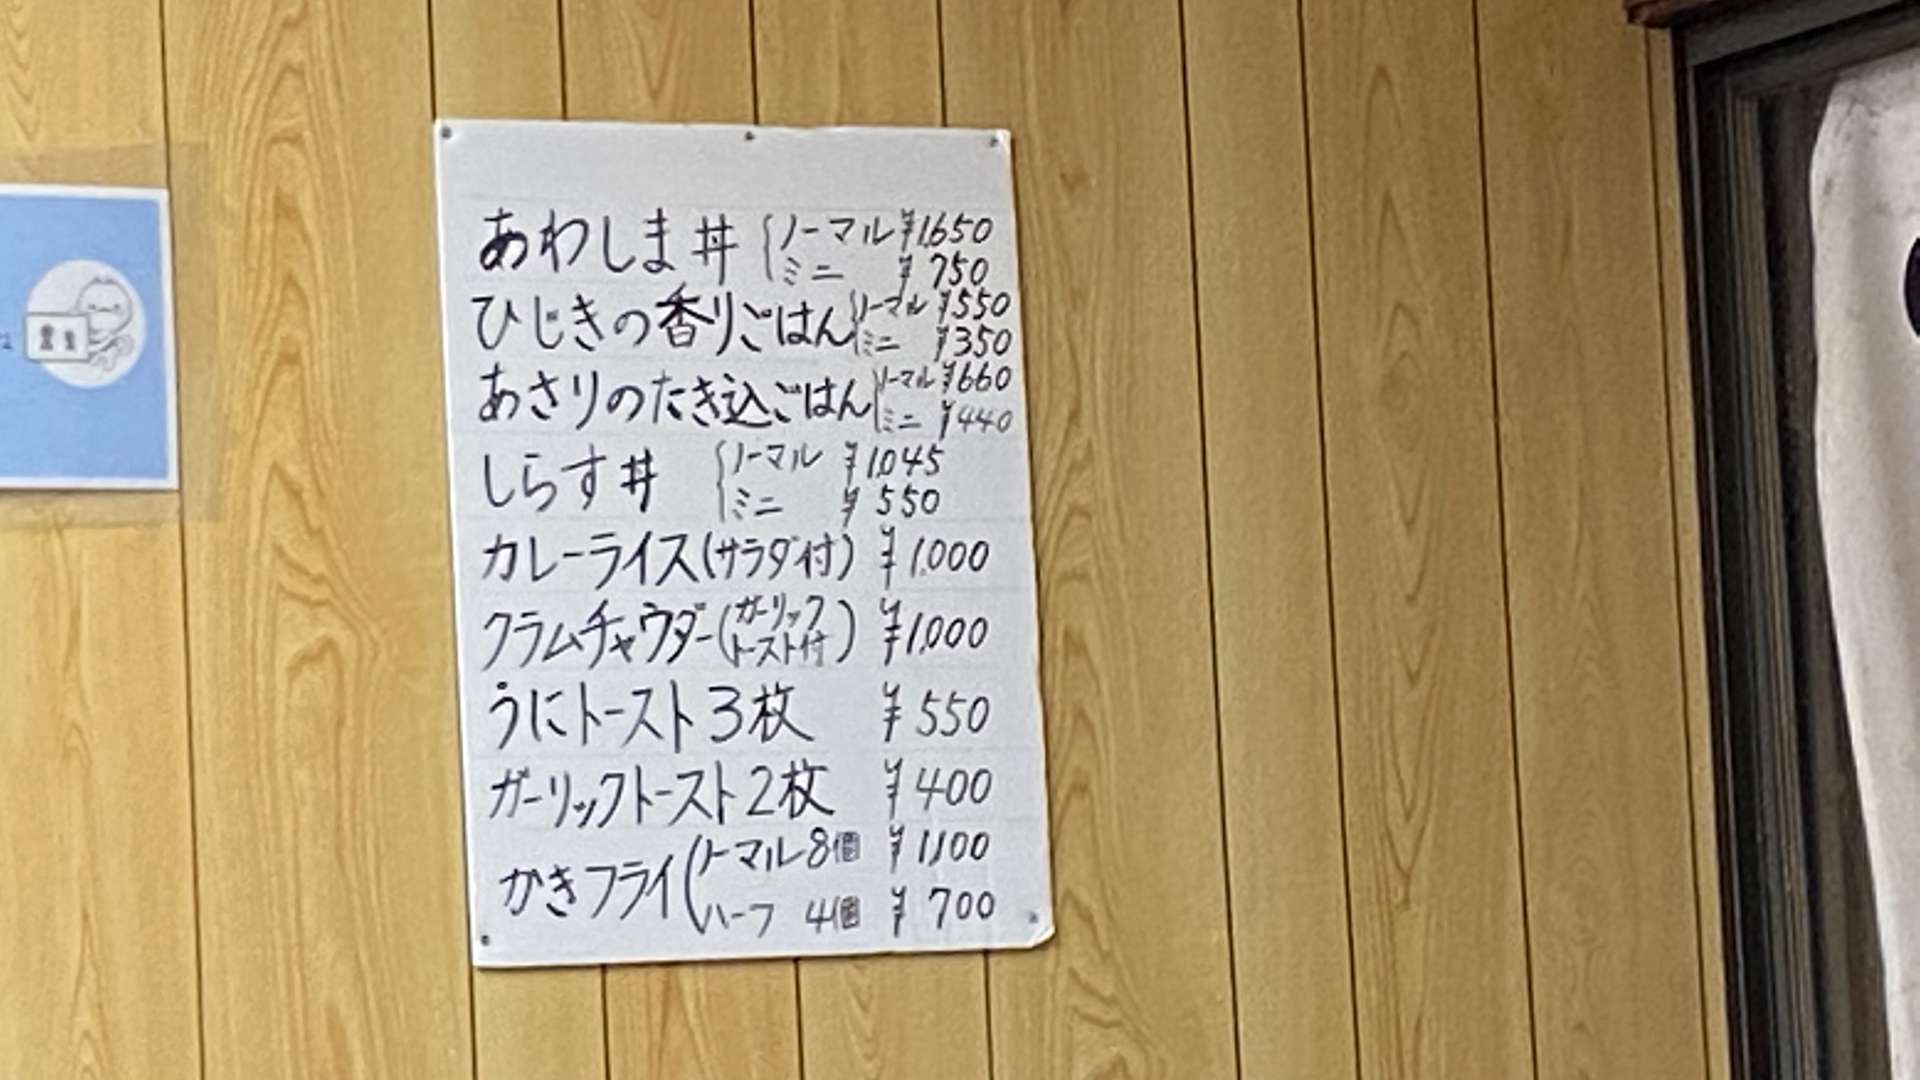 あわしま丼 ノーマル ¥1,650
ミニ ¥750
ひじきの香りごはん ノーマル ¥550
ミニ ¥350
あさりのたき込ごはん ノーマル ¥660
ミニ ¥440
しらす丼 ノーマル ¥1,045
ミニ ¥550
カレーライス(サラダ付) ¥1,000
クラムチャウダー(ガーリックトースト付) ¥1,000
うにトースト3枚 ¥550
ガーリックトースト2枚 ¥400
かきフライ(ノーマル8個 ¥1,100
ハーフ 4個 ¥700